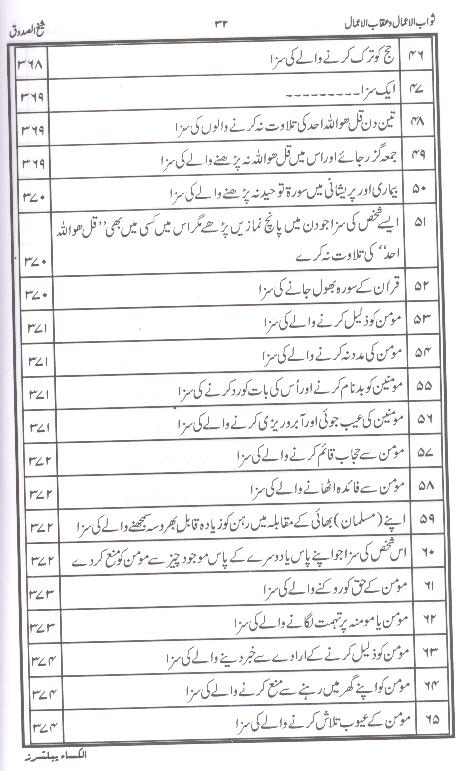 ثواب الاعمال و عقاب الاعمال ۳۲ شیخ الصدوقؒ
۴۶ حج کو ترک کرنے والے کی سزا ۳۶۸
۴۷ ایک سزا ۔۔۔۔۔۔۔۔۔ ۳۶۹
۴۸ تین دن قل ھو اللہ احد کی تلاوت نہ کرنے والوں کی سزا ۳۶۹
۴۹ جمعہ گزر جائے اور اس میں قل ھو اللہ نہ پڑھنے والے کی سزا ۳۶۹
۵۰ بیماری اور پریشانی میں سورۃ توحید نہ پڑھنے والے کی سزا ۳۷۰
۵۱ ایسے شخص کی سزا جو دن میں پانچ نمازیں پڑھے مگر اس میں کسی میں بھی ’’قل ھو اللہ
احد‘‘ کی تلاوت نہ کرے ۳۷۰
۵۲ قرآن کے سورہ بھول جانے کی سزا ۳۷۰
۵۳ مؤمن کو ذلیل کرنے والے کی سزا ۳۷۱
۵۴ مؤمن کی مدد نہ کرنے والے کی سزا ۳۷۱
۵۵ مؤمنین کو بدنام کرنے اور اُس کی بات کو رد کرنے کی سزا ۳۷۱
۵۶ مؤمنین کی عیب جوئی اور آبروریزی کرنے والے کی سزا ۳۷۱
۵۷ مؤمن سے حجاب قائم کرنے والے کی سزا ۳۷۲
۵۸ مؤمن سے فائدہ اٹھانے والے کی سزا ۳۷۲
۵۹ اپنے (مسلمان) بھائی کے مقابلہ میں رہن کو زیادہ قابل بھروسہ سمجھنے والے کی سزا ۳۷۲
۶۰ اس شخص کی سزا جو اپنے پاس یا دوسرے کے پاس موجود چیز سے مؤمن کو منع کر دے ۳۷۲
۶۱ مؤمن کے حق کو روکنے والے کی سزا ۳۷۳
۶۲ مؤمن یا مومنہ پر تہمت لگانے والے کی سزا ۳۷۳
۶۳ مؤمن کو ذلیل کرنے کے ارادے سے خبر دینے والے کی سزا ۳۷۴
۶۴ مؤمن کو اپنے گھر میں رہنے سے منع کرنے والے کی سزا ۳۷۴
۶۵ مؤمن کے عیوب تلاش کرنے والے کی سزا ۳۷۴
الکساء پبلشرز